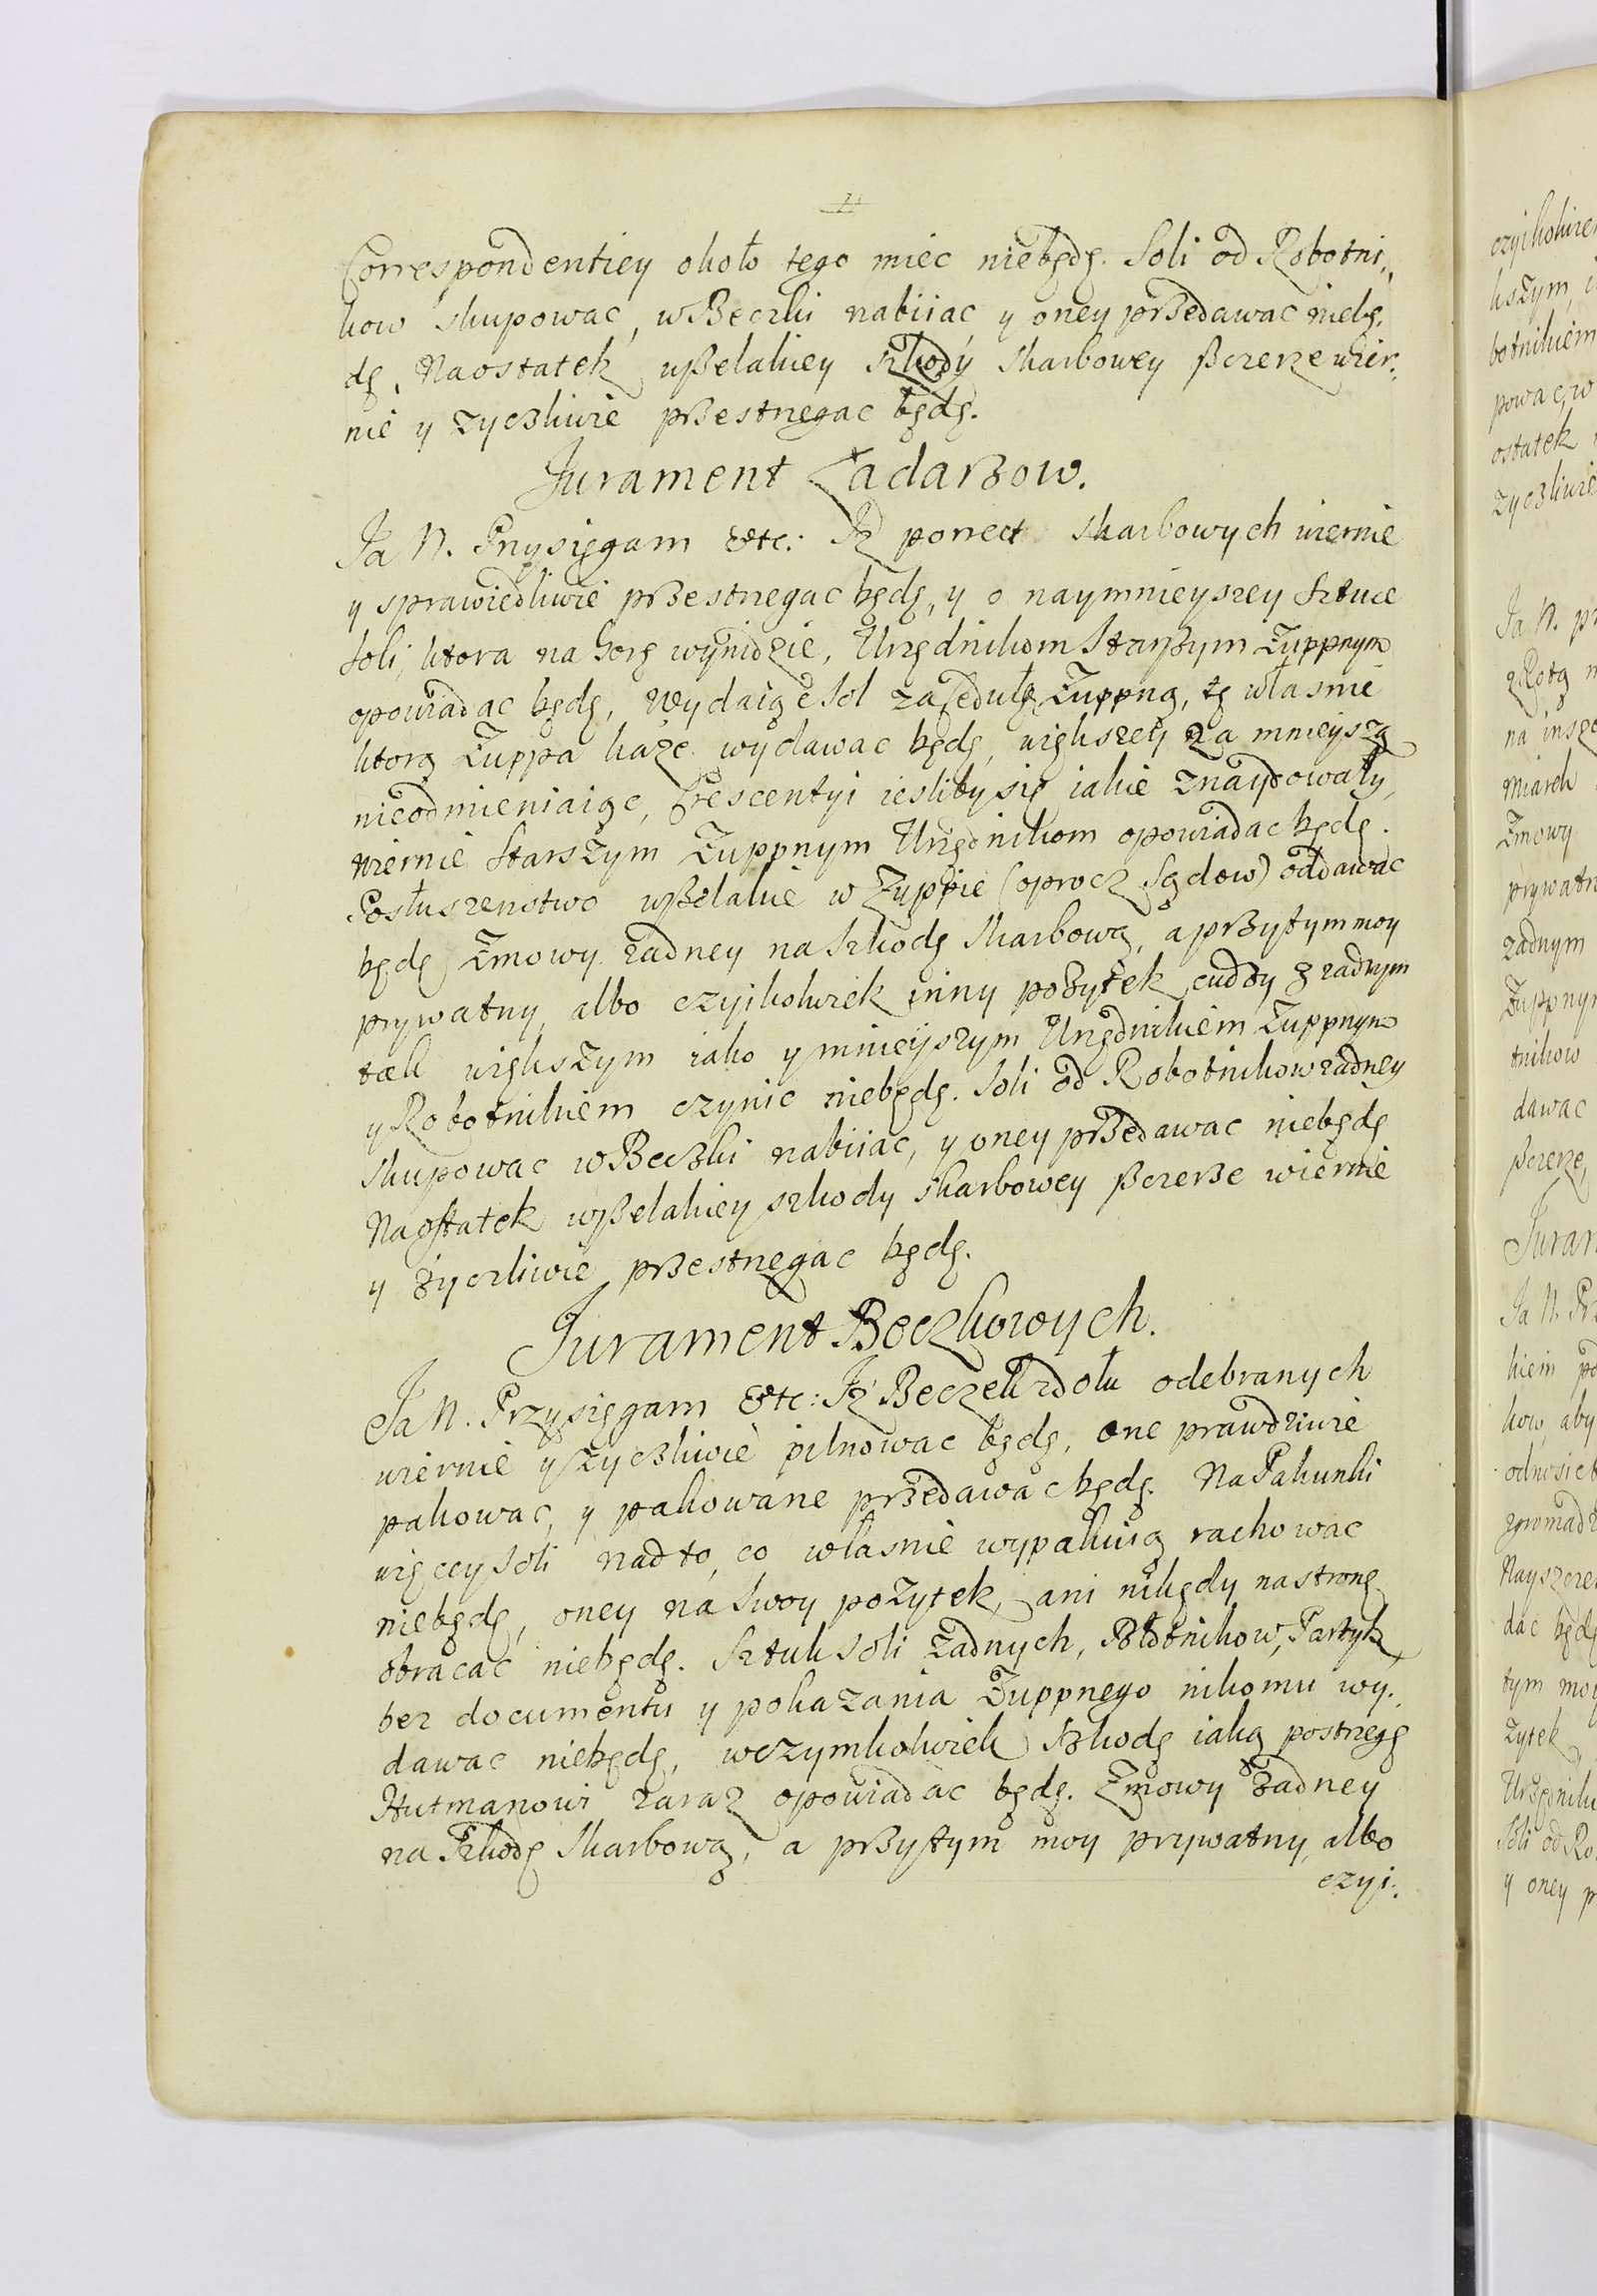 Correspondentiey około tego miec niebędę. Soli od Robotni„
kow skupowac, w Beczki nabiiac y oney przedawac niebę„
dę, Naostatek wszelakiey szkody skarbowey szczerze wier„
nie y zyczliwie przestrzegac będę.
Jurament Ładarzow.
Ja N. Przysięgam &tc: Iz porrect skarbowych wiernie
y sprawiedliwie przestrzegac będę, y o naymnieyszey sztuce
soli, ktora na Gorę wynidzie, Urzędnikom Starszym Żuppnym
opowiadac będę, Wydaiąc sol za sedułą Żuppną, tę własnie
ktorą Żuppa każe wydawac będę, większey za mnieyszą
nieodmieniaiąc, Crescentyi iesliby się iakie znaydowały,
wiernie Starszym Żuppnym Urzędnikom opowiadac będę.
Posłuszenstwo wszelakie w Żuppie (oprocz Sądow) oddawac
będę Zmowy zadney na szkodę skarbową, a przytym moy
prywatny, albo czyikolwiek inny pożytek cudzy z zadnym
tak większym iako y mnieyszym Urzędnikiem Żuppnym
y Robotnikiem czynic niebędę. Soli od Robotnikow zadney
skupowac w Beczki nabiiac, y oney przedawac niebędę
Naostatek wszelakiey szkody skarbowey szczerze wiernie
y życzliwie przestrzegac będę.
Jurament Beczkowych.
Ja N. Przysięgam &tc: Iż Beczek z dołu odebranych
wiernie y życzliwie pilnowac będę, one prawdziwie
pakowac, y pakowane przedawac będę. Na Pakunki
więcey soli nad to, co własnie wypakuią rachowac
niebędę, oney na swoy pożytek, ani nikędy na stronę
obracac niebędę. Sztuk soli żadnych, Błotnikow, Partyk
bez documentu y pokazania Żuppnego nikomu wy„
dawac niebędę, wczymkolwiek szkodę iaką postrzegę
Hutmanowi zaraz opowiadac będę. Zmowy żadney
na szkodę skarbową, a przytym moy prywatny albo
czyi„